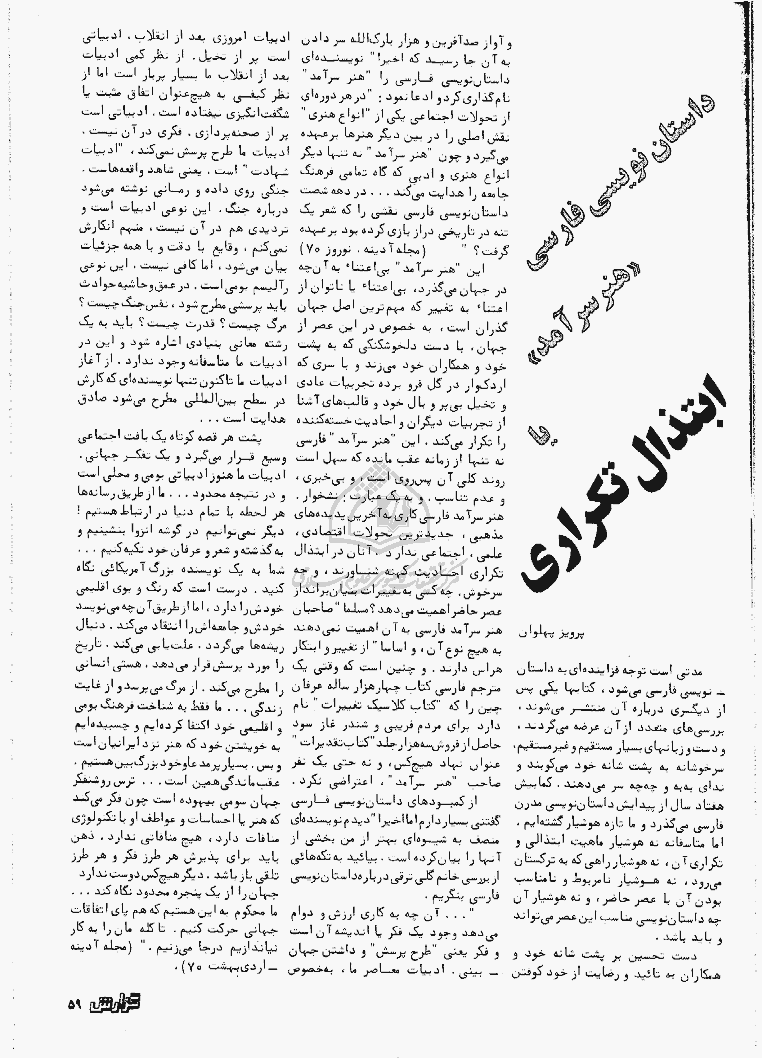 داستان نویسی فارسی
«هنر سرآمد»
یا
ابتذال تکراری
پرویز پهلوان
مدتی است توجه فزاینده‌ای به داستان
ـ نویسی فارسی می‌شود، کتابها یکی پس
از دیگری درباره آن منتشر می‌شوند،
بررسی‌های متعدد از آن عرضه می‌گردند،
و دست و زبانهای بسیار مستقیم و غیرمستقیم،
سرخوشانه به پشت شانه خود می‌کوبند و
ندای به‌به و چه‌چه سر می‌دهند. کمابیش
هفتاد سال از پیدایش داستان‌نویسی مدرن
فارسی می‌گذرد و ما تازه هوشیار گشته‌ایم.
اما متاسفانه نه هوشیار ماهیت ابتذالی و
تکراری آن، نه هوشیار راهی که به ترکستان
می‌رود، نه هوشیار نامربوط و نامناسب
بودن آن با عصر حاضر، و نه هوشیار آن
چه داستان‌نویسی مناسب این عصر می‌تواند
و باید باشد.
دست تحسین بر پشت شانه خود و
همکاران به تائید و رضایت از خود کوفتن
و آواز صدآفرین و هزار بارک‌الله سر دادن
به آن جا رسید که اخیرا" نویسنده‌ای
داستان‌نویسی فارسی را "هنر سرآمد"
نام‌گذاری کرد و ادعا نمود: "در هر دوره‌ای
از تحولات اجتماعی یکی از "انواع هنری"
نقش اصلی را در بین دیگر هنرها برعهده
می‌گیرد و چون "هنر سرآمد" به تنها دیگر
انواع هنری و ادبی که گاه تمامی فرهنگ
جامعه را هدایت می‌کند... در دهه شصت
داستان‌نویسی فارسی نقشی را که شعر یک
تنه در تاریخی دراز بازی کرده بود برعهده
گرفت؟" (مجله آدینه. نوروز ۷۰)
این "هنر سرآمد" بی‌اعتناء به آن‌چه
در جهان می‌گذرد، بی‌اعتناء یا ناتوان از
اعتناء به تغییر که مهم‌ترین اصل جهان
گذران است، به خصوص در این عصر از
جهان، با دست دلخوشکنکی که به پشت
خود و همکاران خود می‌زند و با سری که
اردک‌وار در گل فرو برده تجربیات عادی
و تخیل بی‌پر و بال خود و قالب‌های آشنا
از تجربیات دیگران و احادیث خسته‌کننده
را تکرار می‌کند. این "هنر سرآمد" فارسی
نه تنها از زمانه عقب مانده که سهل است
روند کلی آن پس‌روی است، و بی‌خبری،
و عدم تناسب، و به یک عبارت. نشخوار.
هنر سرآمد فارسی کاری به آخرین پدیده‌های
مذهبی، جدیدترین تحولات اقتصادی،
علمی، اجتماعی ندارد. آنان در ابتذال
تکراری احادیث کهنه شناورند، و چه
سرخوش. چه کسی به تغییرات بنیان‌برانداز
عصر حاضر اهمیت می‌دهد؟ مسلما "صاحبان
هنر سرآمد فارسی به آن اهمیت نمی‌دهند
به هیچ نوع آن، و اساسا" از تغییر و ابتکار
هراس دارند. و چنین است که وقتی یک
مترجم فارسی کتاب چهارهزار ساله عرفان
چین را که "کتاب کلاسیک تغییرات" نام
دارد برای مردم فریبی و شندر غاز سود
حاصل از فروش سه‌هزار جلد "کتاب تقدیرات"
عنوان نهاد هیچ‌کس، و نه حتی یک نفر
صاحب "هنر سرآمد"، اعتراضی نکرد.
از کمبودهای داستان‌نویسی فارسی
گفتنی بسیار دارم اما اخیرا "دیدم نویسنده‌ای
منصف به شیوه‌ای بهتر از من بخشی از
آنها را بیان کرده است. بیائید به تکه‌هائی
از بررسی خانم گلی ترقی درباره داستان‌نویسی
فارسی بنگریم.
"... آن چه به کاری ارزش و دوام
می‌دهد وجود یک فکر یا اندیشه آن است
و فکر یعنی "طرح پرسش" و داشتن جهان
ـ بینی. ادبیات معاصر ما، به‌خصوص
ادبیات امروزی بعد از انقلاب، ادبیاتی
است پر از تخیل. از نظر کمی ادبیات
بعد از انقلاب ما بسیار پربار است اما از
نظر کیفی به هیچ‌عنوان اتفاق مثبت یا
شگفت‌انگیزی نیفتاده است. ادبیاتی است
پر از صحنه‌پردازی. فکری در آن نیست.
ادبیات ما طرح پرسش نمی‌کند، "ادبیات
شهادت" است. یعنی شاهد واقعه‌هاست.
جنگی روی داده و رمانی نوشته می‌شود
درباره جنگ. این نوعی ادبیات است و
تردیدی هم در آن نیست، منهم انکارش
نمی‌کنم، وقایع با دقت و با همه جزئیات
بیان می‌شود، اما کافی نیست. این نوعی
رآلیسم بومی است. در عمق و حاشیه حوادث
باید پرسشی مطرح شود، نفس جنگ چیست؟
مرگ چیست؟ قدرت چیست؟ باید به یک
رشته معانی بنیادی اشاره شود و این در
ادبیات ما متاسفانه وجود ندارد. از آغاز
ادبیات ما تاکنون تنها نویسنده‌ای که کارش
در سطح بین‌المللی مطرح می‌شود صادق
هدایت است...
پشت هر قصه کوتاه یک بافت اجتماعی
وسیع قرار می‌گیرد و یک تفکر جهانی.
ادبیات ما هنوز ادبیاتی بومی و محلی است
و در نتیجه محدود... ما از طریق رسانه‌ها
هر لحظه با تمام دنیا در ارتباط هستیم!
دیگر نمی‌توانیم در گوشه انزوا بنشینیم و
به گذشته و شعر و عرفان خود تکیه کنیم...
شما به یک نویسنده بزرگ آمریکائی نگاه
کنید. درست است که رنگ و بوی اقلیمی
خودش را دارد، اما از طریق آن چه می‌نویسد
خودش و جامعه‌اش را انتقاد می‌کند. دنبال
ریشه‌ها می‌گردد. علت‌یابی می‌کند. تاریخ
را مورد پرسش قرار می‌دهد، هستی انسانی
را مطرح می‌کند. از مرگ می‌پرسد و از غایت
زندگی... ما فقط به شناخت فرهنگ بومی
و اقلیمی خود اکتفا کرده‌ایم و چسبیده‌ایم
به خویشتن خود که هنر نزد ایرانیان است
و بس. بسیار پرمدعا و خودبزرگ‌بین هستیم.
عقب‌ماندگی همین است... ترس روشنفکر
جهان سومی بیهوده است چون فکر می‌کند
که هنر یا احساسات و عواطف او با تکنولوژی
منافات دارد، هیچ منافاتی ندارد. ذهن
باید برای پذیرش هر طرز فکر و هر طرز
تلقی باز باشد. دیگر هیچ‌کس دوست ندارد
جهان را از یک پنجره محدود نگاه کند...
ما محکوم به این هستیم که هم پای اتفاقات
جهانی حرکت کنیم. تا کله مان را به کار
نیاندازیم درجا می‌زنیم." (مجله آدینه
ـ اردی‌بهشت ۷۰).
گزارش ۵۹